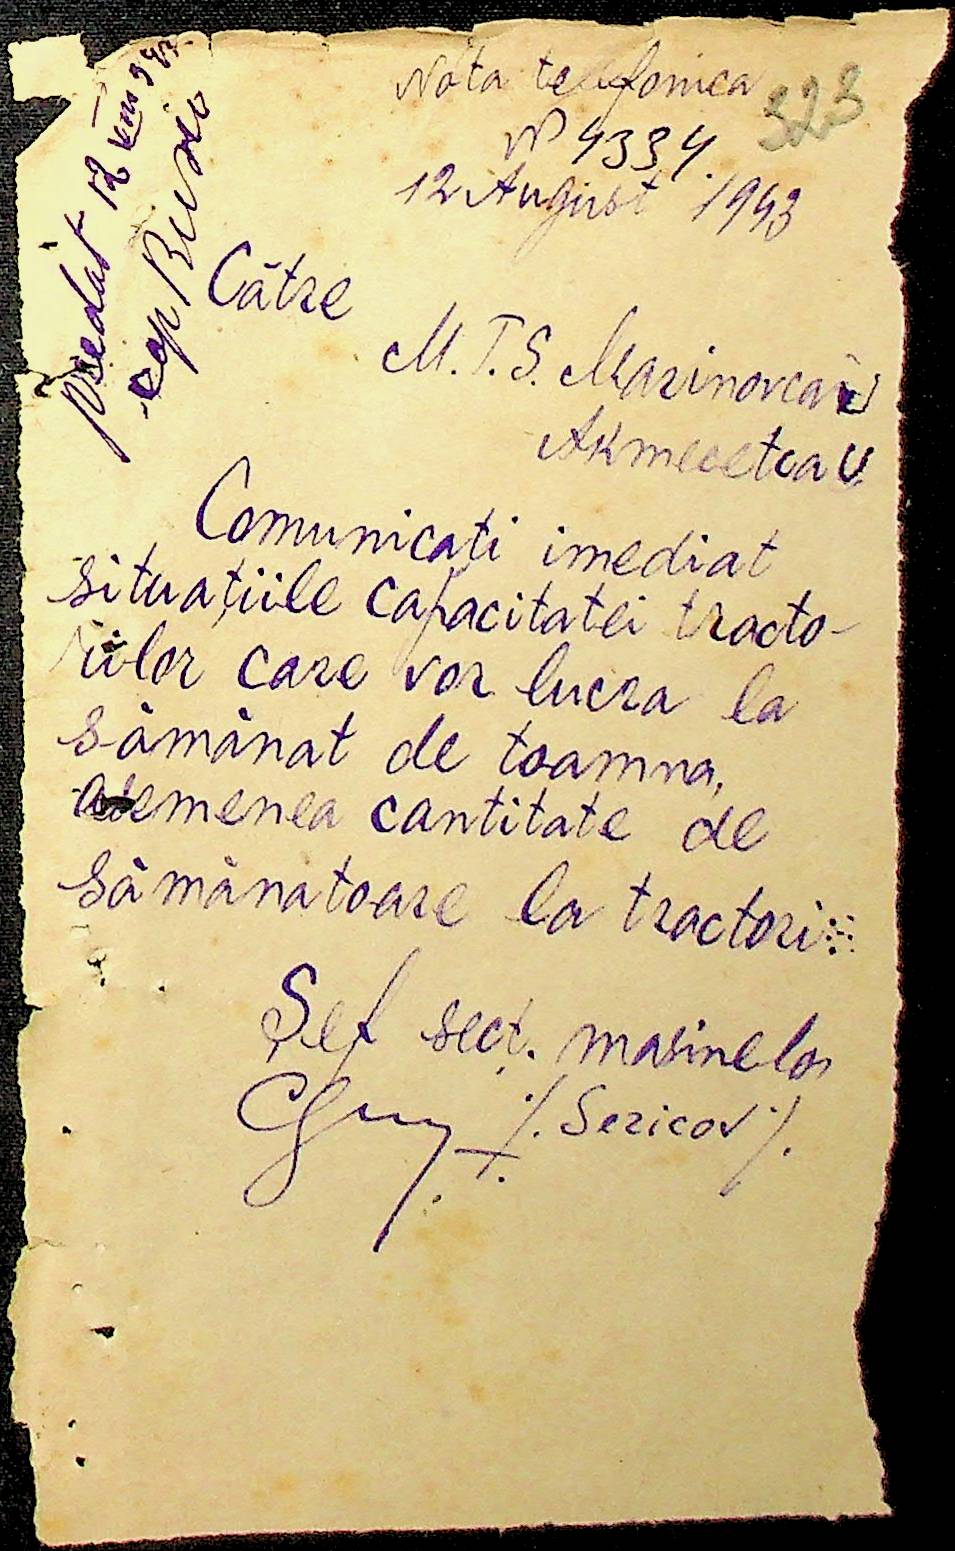 Nota telefonica
323
№ 4334.
12 August 1943
predat 12 VIII 943
Către
M.T.S. Marinovca
Akmecetca
Comunicati imediat
situațiile capacitatei tracto-
rilor care vor lucra la
sămănat de toamna,
asemenea cantitate de
sămănatoare la tractori
Șef sect. masinelor
/. Sericov /.